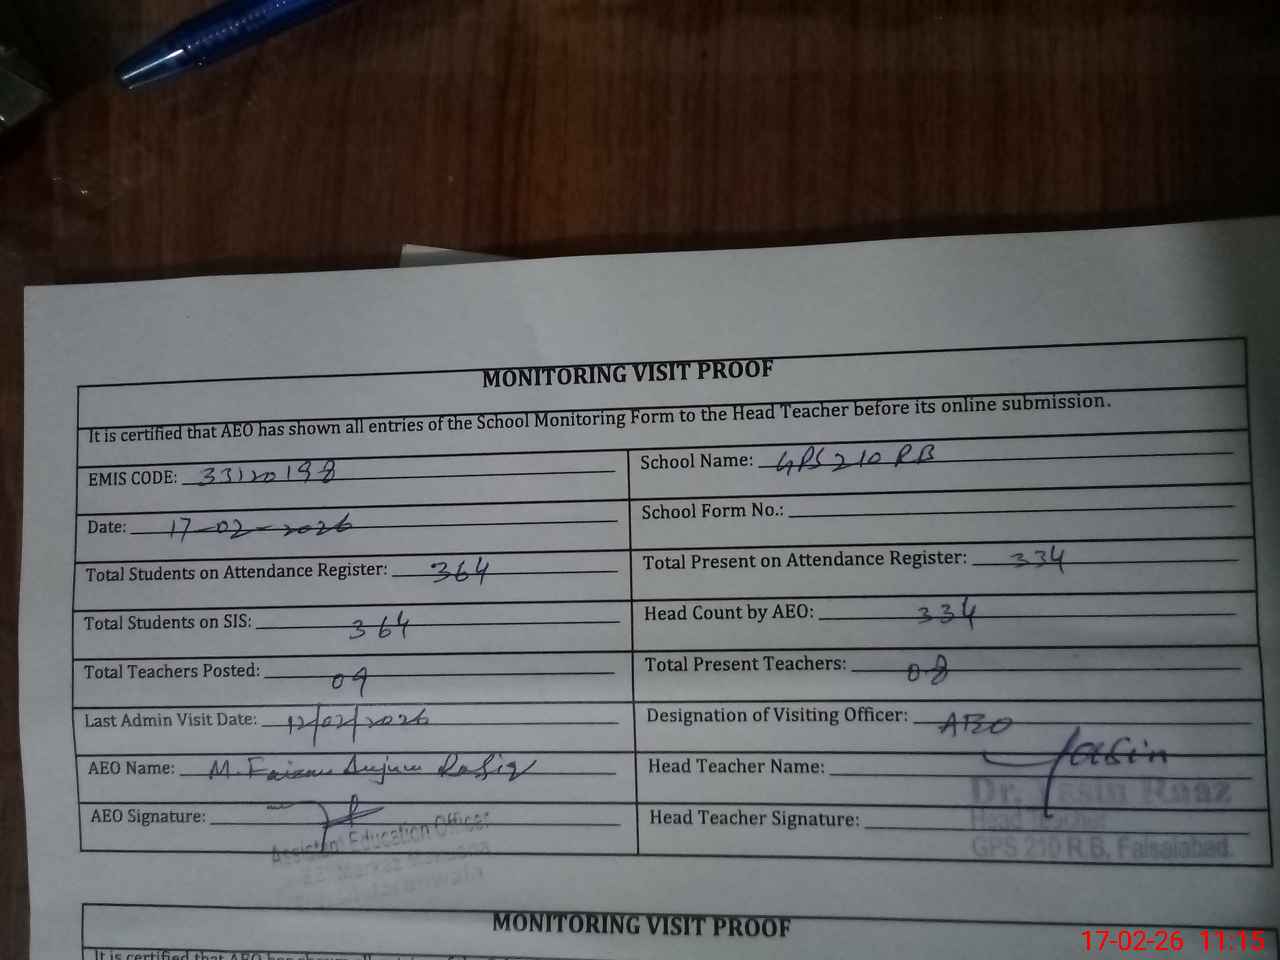 MONITORING VISIT PROOF
It is certified that AEO has shown all entries of the School Monitoring Form to the Head Teacher before its online submission.
EMIS CODE: 33120198
School Name: GPS 210 RB
Date: 17-02-2026
School Form No.:
Total Students on Attendance Register: 364
Total Present on Attendance Register: 334
Total Students on SIS: 364
Head Count by AEO: 334
Total Teachers Posted: 09
Total Present Teachers: 08
Last Admin Visit Date: 12/02/2026
Designation of Visiting Officer: AEO
AEO Name: M. Faizan Anjum Rafiq
Head Teacher Name: Yasin
AEO Signature:
Head Teacher Signature:
Assistant Education Officer
Dr. Yasin
Head Teacher
GPS 210 R.B. Faisalabad.
MONITORING VISIT PROOF
It is certified that AEO has shown all
17-02-26 11:15